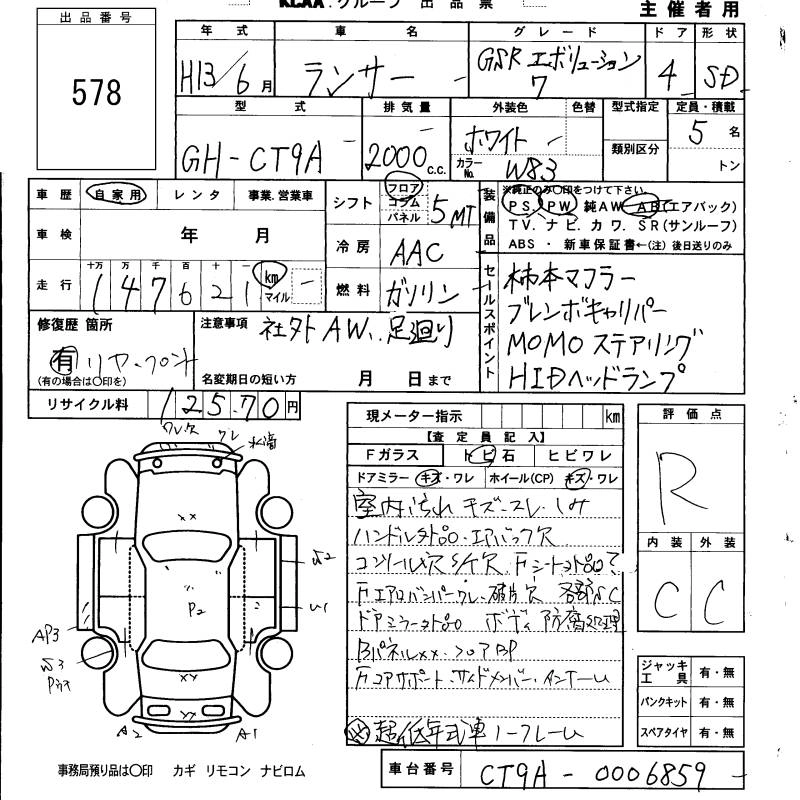 KCAA.グループ 出品票
主催者用
出品番号
578
年式 車名 グレード ドア 形状
H13/6月 ランサー GSR エボリューション7 4 SD
型式 排気量 外装色 色替 型式指定 定員・積載
GH-CT9A 2000c.c. ホワイト 5名
カラーNo. W83 類別区分 トン
車歴 自家用 レンタ 事業.営業車
シフト フロア コラム パネル 5MT
装備品 ※純正のみ〇印をつけて下さい
PS PW 純AW AB(エアバック)
TV. ナビ. カワ. SR(サンルーフ)
ABS ・ 新車保証書←(注) 後日送りのみ
車検 年 月
冷房 AAC
走行 十万 万 千 百 十 一
147621 km マイル
燃料 ガソリン
セールスポイント
柿本マフラー
ブレンボキャリパー
MOMOステアリング
HIDヘッドランプ
修復歴 箇所
有 リヤ.フロント
(有の場合は〇印を)
注意事項 社外AW.足廻り
名変期日の短い方 月 日まで
リサイクル料 12570円
現メーター指示 km
【査定員記入】
Fガラス トビ石 ヒビワレ
ドアミラー キズ・ワレ ホイール(CP) キズ・ワレ
室内汚れ キズ.スレ.シミ
ハンドル外品.エアバック欠
コンソール欠 S/T欠 Fシート外品
Fエアロバンパーワレ.破片欠 各部
ドアミラー外品 ボディ防腐処理
Bパネル××.フロアBP
Fコアサポート.サイドメンバー.インナー
超低年式車 ノークレーム
評価点
R
内装 外装
C C
ジャッキ工具 有・無
パンクキット 有・無
スペアタイヤ 有・無
ワレ欠 ワレ
××
P2
U1
AP3
××
A2 A1
事務局預り品は〇印 カギ リモコン ナビロム
車台番号 CT9A-0006859